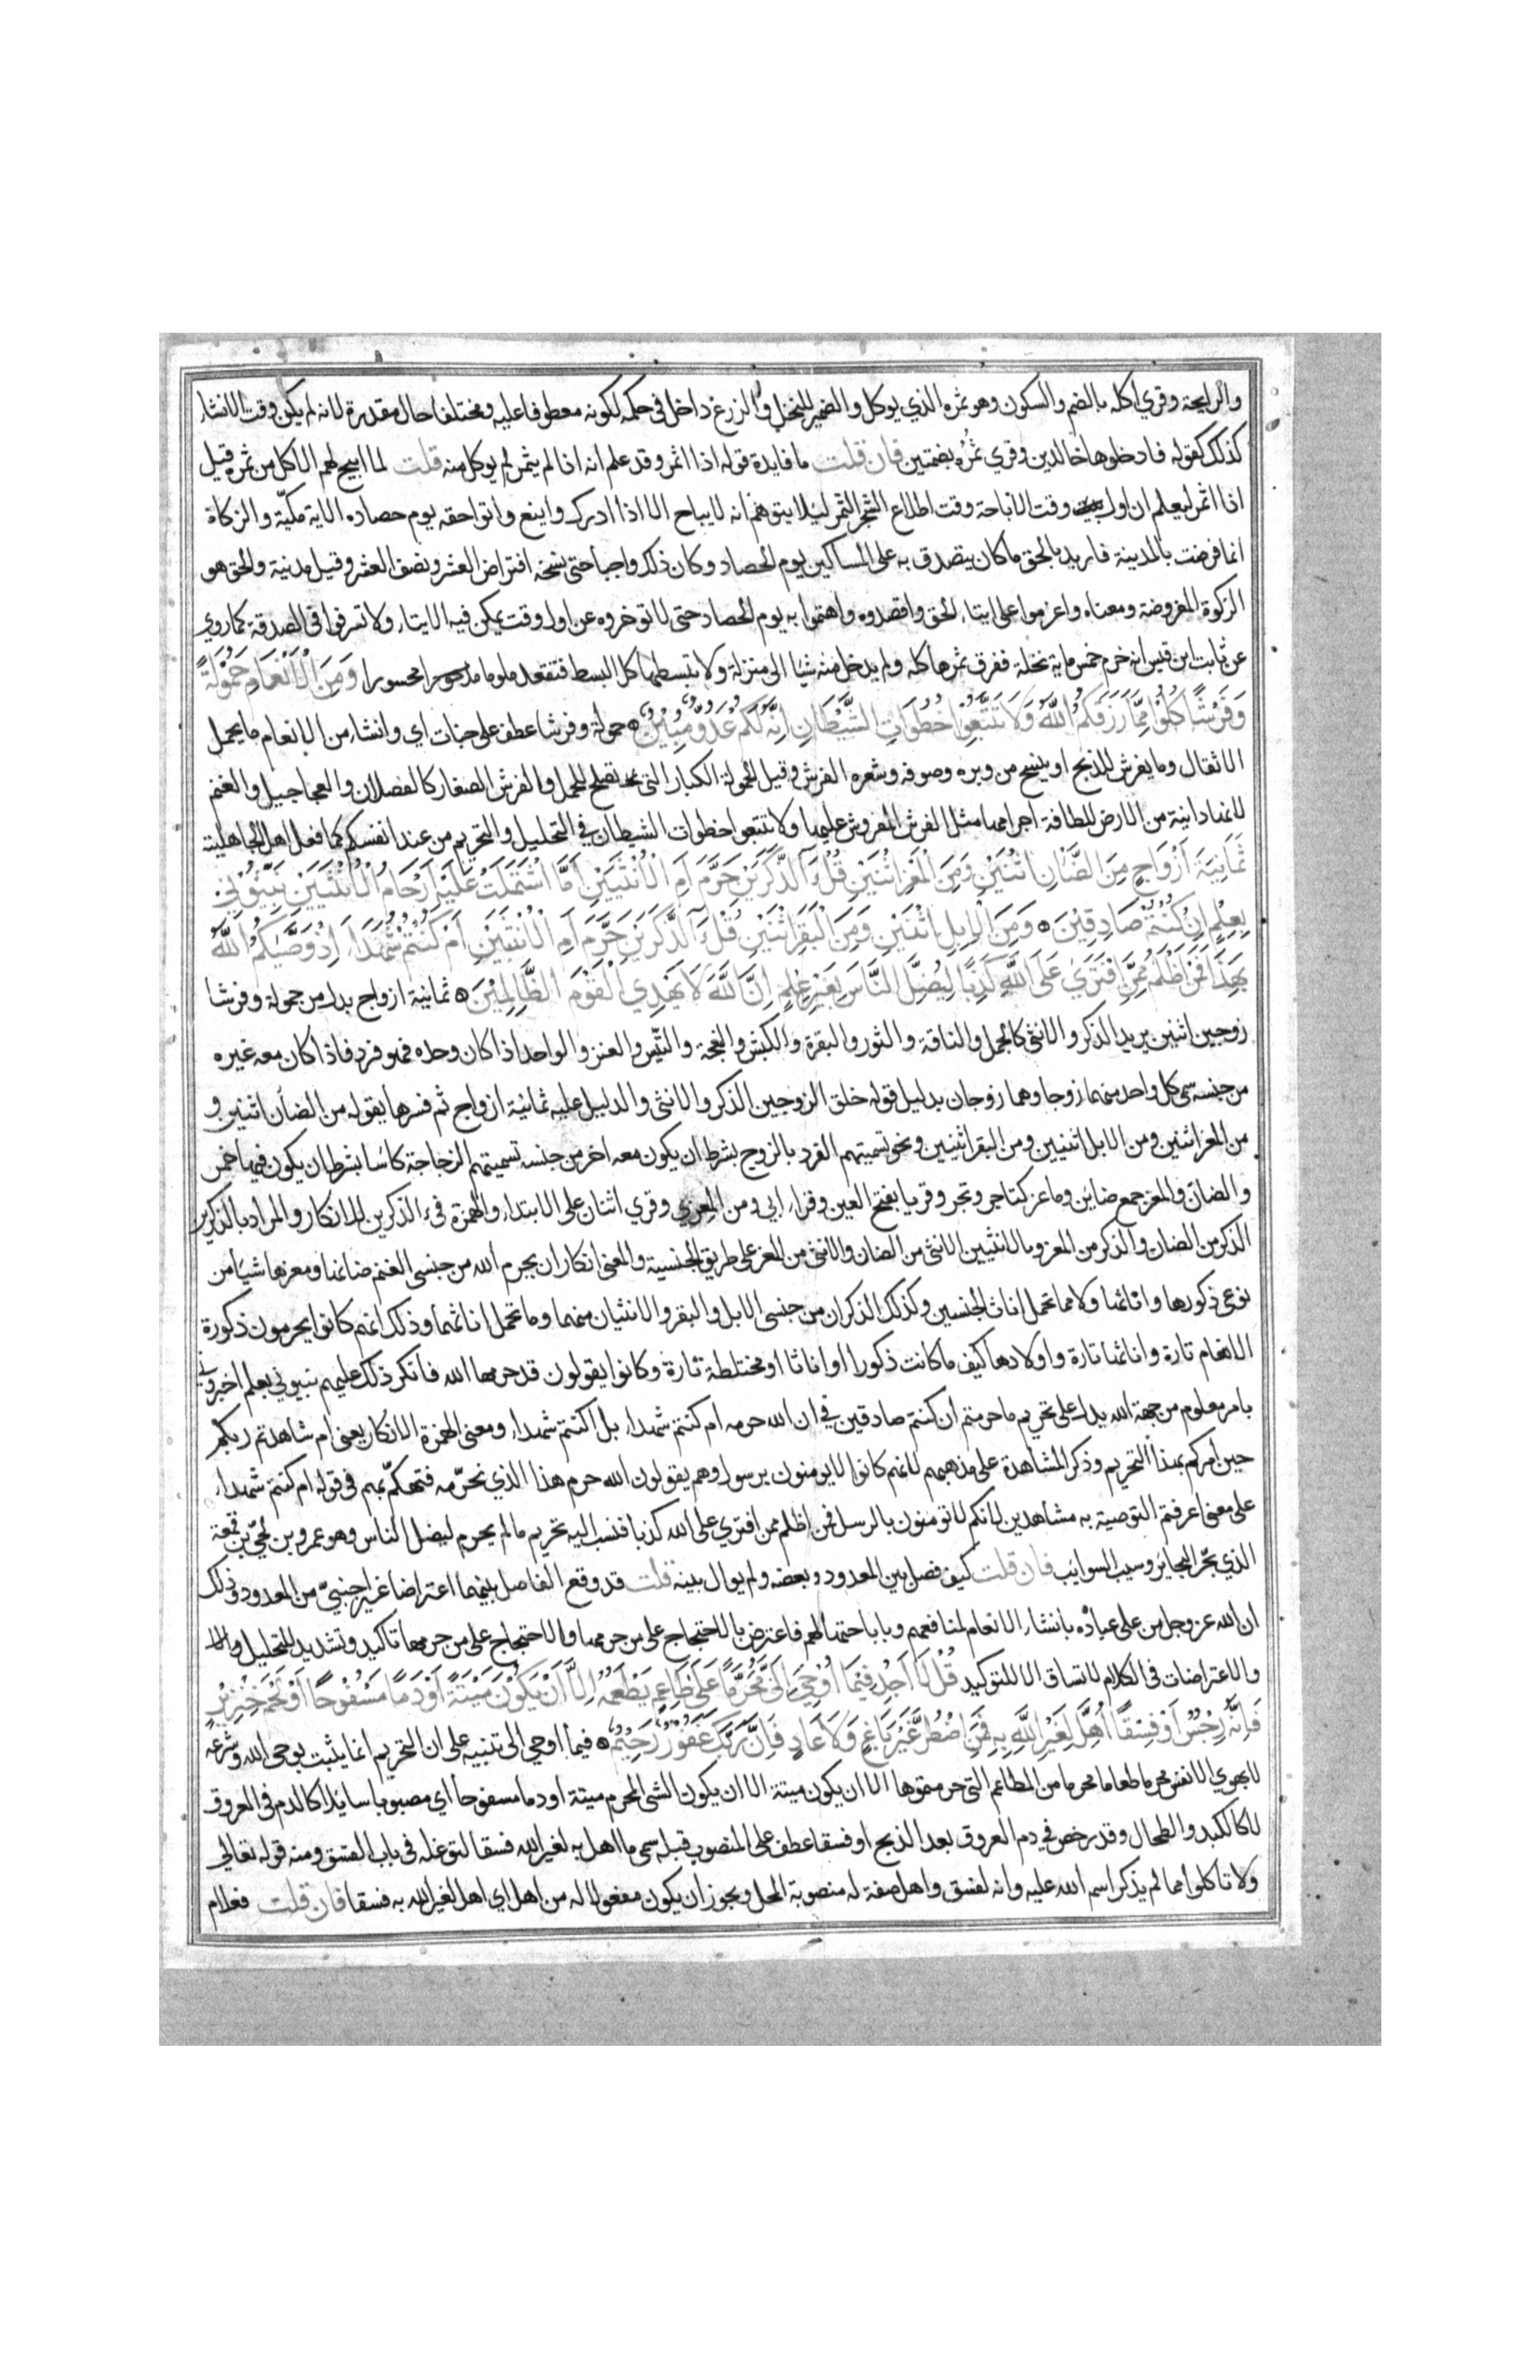 والرايحة وقري اكله بالضم والسكون وهو ثمره الذي يوكل والضمير للنخل والزرع داخل في حكمه لكونه معطوفا عليه ومختلفا حال مقدرة لانه لم يكن وقت الانشاء
كذلك كقوله فادخلوها خالدين وقري ثمُره بضمتين فان قلت ما فايدة قوله اذا اثمر وقد علم انه اذا لم يثمر لم يوكل منه قلت لما ابيح لهم الاكل من ثمره قيل
اذا اثمر ليعلم ان اول وقت الاباحة وقت اطلاع الشجر الثمر ليلا يتوهم انه لا يباح الا اذا ادرك واينع واتوا حقه يوم حصاده الاية مكيّة والزكاة
انما فرضت بالمدينة فاريد بالحق ما كان يتصدق به على المساكين يوم الحصاد وكان ذلك واجبا حتى نسخه افتراض العشر ونصف العشر وقيل مدنية والحق هو
الزكوة المفروضة ومعناه واعزموا على ايتاء الحق واقصدوه واهتموا به يوم الحصاد حتى لا توخروه عن اول وقت يمكن فيه الايتاء ولا تسرفوا في الصدقة كما روي
عن ثابت ابن قيس انه خرم خمس ماية نخلة ففرق ثمرها كله ولم يدخل منه شيا الى منزله ولا تبسطها كل البسط فتقعد ملوما محسورا وَمِنَ الْاَنْعَامِ حَمُوْلَةً
وَفَرْشًا كُلُوْا مِمَّا رَزَقَكُمُ اللّٰهُ وَلَا تَتَّبِعُوْا خُطُوَاتِ الشَّيْطَانِ اِنَّهٗ لَكُمْ عَدُوٌّ مُّبِيْنٌ حمولة وفرشا عطف على جنات اي وانشاء من الانعام ما يحمل
الاثقال وما يفرش للذبح او ينسج من وبره وصوفه وشعره الفرش وقيل الحمولة الكبار التى تصلح للحمل والفرش الصغار كالفصلان والعجاجيل والغنم
لانها دانية من الارض للطافة اجرامها مثل الفرش المفروش عليها ولا تتبعوا خطوات الشيطان في التحليل والتحريم من عند انفسكم كما فعل اهل الجاهلية
ثَمَانِيَةَ اَزْوَاجٍ مِنَ الضَّانِ اثْنَيْنِ وَمِنَ الْمَعْزِ اثْنَيْنِ قُلْ ءٰٓالذَّكَرَيْنِ حَرَّمَ اَمِ الْاُنْثَيَيْنِ اَمَّا اشْتَمَلَتْ عَلَيْهِ اَرْحَامُ الْاُنْثَيَيْنِ نَبِّئُوْنِي
بِعِلْمٍ اِنْ كُنْتُمْ صَادِقِيْنَ وَمِنَ الْاِبِلِ اثْنَيْنِ وَمِنَ الْبَقَرِ اثْنَيْنِ قُلْ ءٰٓالذَّكَرَيْنِ حَرَّمَ اَمِ الْاُنْثَيَيْنِ اَمْ كُنْتُمْ شُهَدَآءَ اِذْ وَصّٰىكُمُ اللّٰهُ
بِهٰذَا فَمَنْ اَظْلَمُ مِمَّنِ افْتَرٰي عَلَى اللّٰهِ كَذِبًا لِيُضِلَّ النَّاسَ بِغَيْرِ عِلْمٍ اِنَّ اللّٰهَ لَا يَهْدِي الْقَوْمَ الظَّالِمِيْنَ ثمانية ازواج بدل من حمولة وفرشا
زوجين اثنين يريد الذكر والانثى كالجمل والناقة والثور والبقرة والكبش والنعجة والتّيس والعنز والواحد اذا كان وحده فهو فرد فاذا كان معه غيره
من جنسه سمى كل واحد منهما زوجا وهما زوجان بدليل قوله خلق الزوجين الذكر والانثى والدليل عليه ثمانية ازواج ثم فسرها بقوله من الضأن اثنين و
من المعز اثنين ومن الابل اثنيين ومن البقر اثنين ونحو تسميتهم الفرد بالزوج بشرط ان يكون معه اخر من جنسه تسميتهم الزجاجة كاسًا بشرط ان يكون فيها خمر
والضان والمعز جمع ضاين وماعز كتاجر وتجر وقريا بفتح العين وقراء ابي ومن المعزي وقري اثنان على الابتداء والهمزة في ءالذكرين للانكار والمراد بالذكرين
الذكر من الضان والذكر من المعز وبالانثيين الانثى من الضان والانثى من المعز على طريق الجنسية والمعنى انكار ان يحرم الله من جنسى الغنم ضانها ومعزها شيا من
نوعى ذكورها واناثها ولا مما تحمل اناث الجنسين وكذلك الذكران من جنسى الابل والبقر والانثيان منهما وما تحمل اناثهما وذلك انهم كانوا يحرمون ذكورة
الانعام تارة واناثها تارة واولادها كيف ما كانت ذكورا او اناثا او مختلطة تارة وكانوا يقولون قد حرمها الله فانكر ذلك عليهم نبيوني بعلم اخبروني
بامر معلوم من جهة الله يدل على تحريم ما حرمتم ان كنتم صادقين في ان الله حرمه ام كنتم شهداء بل اكنتم شهداء ومعنى الهمزة الانكار يعنى ام شاهدتم ربكم
حين امركم بهذا التحريم وذكر المشاهدة على مذهبهم لانهم كانوا لايومنون برسول وهم يقولون الله حرم هذا الذي نحرّمه فتهكّم بهم في قوله ام كنتم شهداء
على معنى اعرفتم التوصية به مشاهدين لانكم لا تومنون بالرسل فمن اظلم ممن افتري على الله كذبا فنسب اليه تحريم ما لم يحرم ليضل الناس وهو عمرو بن لحيّ بن قمعة
الذي بحّر البحاير وسيب السوايب فان قلت كيف فصل بين المعدود وبعضه ولم يوال بينه قلت قد وقع الفاصل بينهما اعتراضا غير اجنبيّ من المعدود وذلك
ان الله عز وجل من على عباده بانشاء الانعام لمنافعهم وباباحتها لهم فاعترض بالاحتجاج على من حرمها والاحتجاج على من حرمها تاكيد وتشديد للتحليل
والاعتراضات في الكلام لا تساق الا للتوكيد قُلْ لَا اَجِدُ فِيْمَا اُوْحِيَ اِلَيَّ مُحَرَّمًا عَلَى طَاعِمٍ يَطْعَمُهٗ اِلَّا اَنْ يَكُوْنَ مَيْتَةً اَوْ دَمًا مَسْفُوْحًا اَوْ لَحْمَ خِنْزِيْرٍ
فَاِنَّهٗ رِجْسٌ اَوْ فِسْقًا اُهِلَّ لِغَيْرِ اللّٰهِ بِهٖ فَمَنِ اضْطُرَّ غَيْرَ بَاغٍ وَلَا عَادٍ فَاِنَّ رَبَّكَ غَفُوْرٌ رَحِيْمٌ فيما اوحي الى تنبيه على ان التحريم انما يثبت بوحى الله وشرعه
لا بهوي الانفس محرما طعاما محرما من المطاعم التى حرمتموها الا ان يكون ميتة الا ان يكون الشى المحرم ميتة او دما مسفوحا اي مصبوبا سايلا كالدم في العروق
لا كالكبد والطحال وقد رخص في دم العروق بعد الذبح او فسقا عطف على المنصوب قبله سمى ما اهل به لغير الله فسقا لتوغله في باب الفسق ومنه قوله تعالى
ولا تاكلوا مما لم يذكر اسم الله عليه وانه لفسق واهل صفة له منصوبة المحل ويجوز ان يكون مفعولا له من اهل اي اهل لغير الله به فسقا فان قلت فعلام